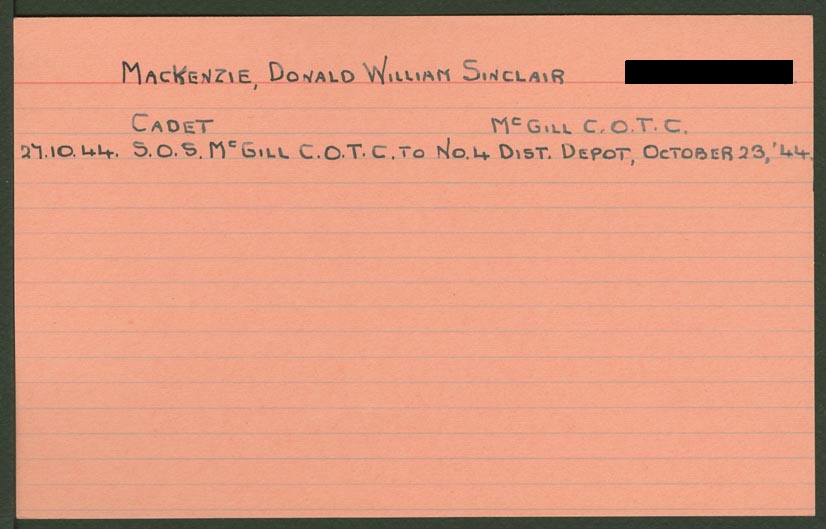 MACKENZIE, DONALD WILLIAM SINCLAIR
CADET McGILL C.O.T.C.
27.10.44. S.O.S. McGILL C.O.T.C. TO No.4 DIST. DEPOT, OCTOBER 23, '44.